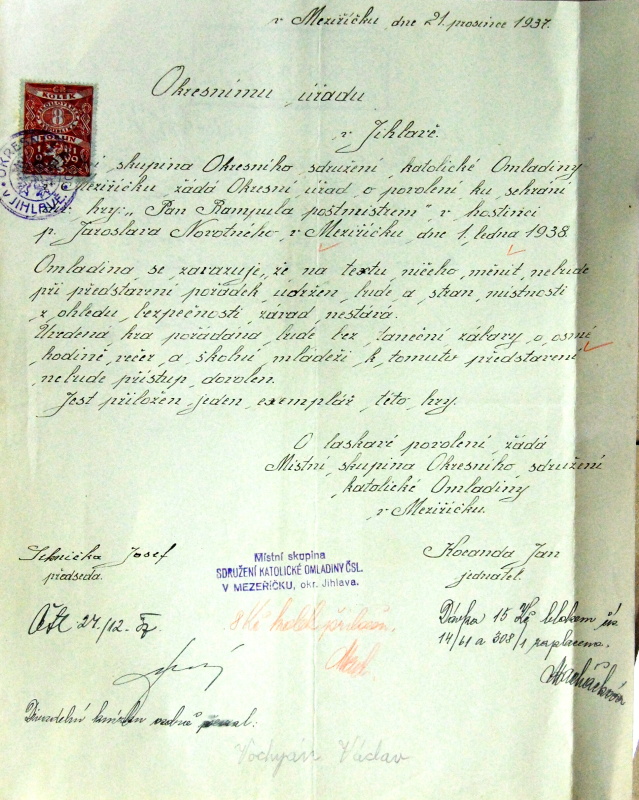 v Meziříčku dne 21. prosince 1937.
Okresnímu úřadu
v Jihlavě.
KOLEK
8
OKRES
V JIHLAVĚ
skupina Okresního sdružení katolické Omladiny
Meziříčku žádá Okresní úřad o povolení ku sehrání
hry: „Pan Rampula poštmistrem" v hostinci
p. Jaroslava Novotného v Meziříčku dne 1. ledna 1938.
Omladina se zavazuje, že na textu ničeho měnit nebude
při představení pořádek udržen bude a stran místnosti
z ohledu bezpečnosti závad nestává.
Uvedená hra pořádána bude bez taneční zábavy o osmé
hodině večer a školní mládeži k tomuto představení
nebude přístup dovolen.
Jest přiložen jeden exemplář této hry.
O laskavé povolení žádá
Místní skupina Okresního sdružení
katolické Omladiny
v Meziříčku.
Josef
předseda.
Místní skupina
SDRUŽENÍ KATOLICKÉ OMLADINY ČSL.
V MEZEŘÍČKU, okr. Jihlava.
Kocanda Jan
jednatel.
27/12.
8 Kč kolek přilož.
Dávka 15 Kč blokem čís.
14/61 a 308/1 zaplacena.
Divadelní knížku
Vochyán Václav